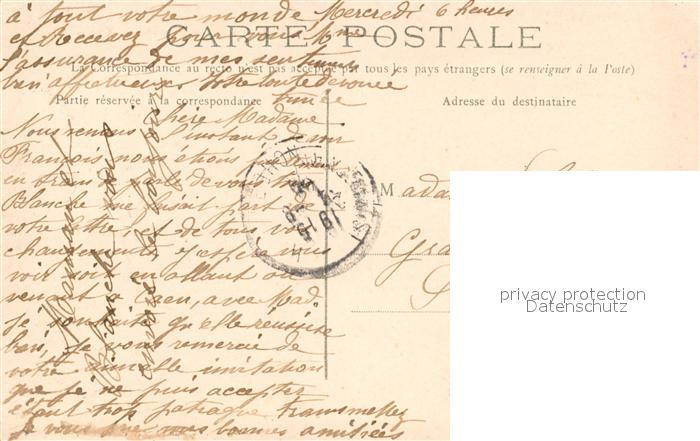 à tout votre monde Mercredi 6 heures
et Recevez pour vous Mme
CARTE POSTALE
l'assurance de mes sentiments
La Correspondance au recto n'est pas acceptée par tous les pays étrangers (se renseigner à la Poste)
bien affectueux votre toute dévouée
Partie réservée à la correspondance
Adresse du destinataire
Chère Madame
Nous l'instant
François nous étions
en train parle de vous
Blanche me faisait part de
votre lettre, et de tous vos
changements j'espère vous
voir soit en allant ou
venant à Caen, avec Mad.
Je souhaite qu'elle réussisse
bien, Je vous remercie de
votre aimable invitation
que je ne puis accepter
étant trop patraque transmettez
Je vous prie mes bonnes amitiés
Maman
Blanche
M Mada
Gra
privacy protection
Datenschutz